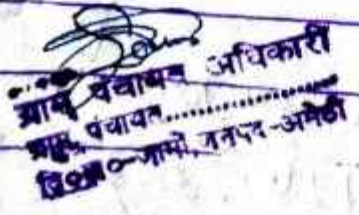 ग्राम पंचायत अधिकारी
ग्राम पंचायत....................
वि०ख०-जामो, जनपद-अमेठी